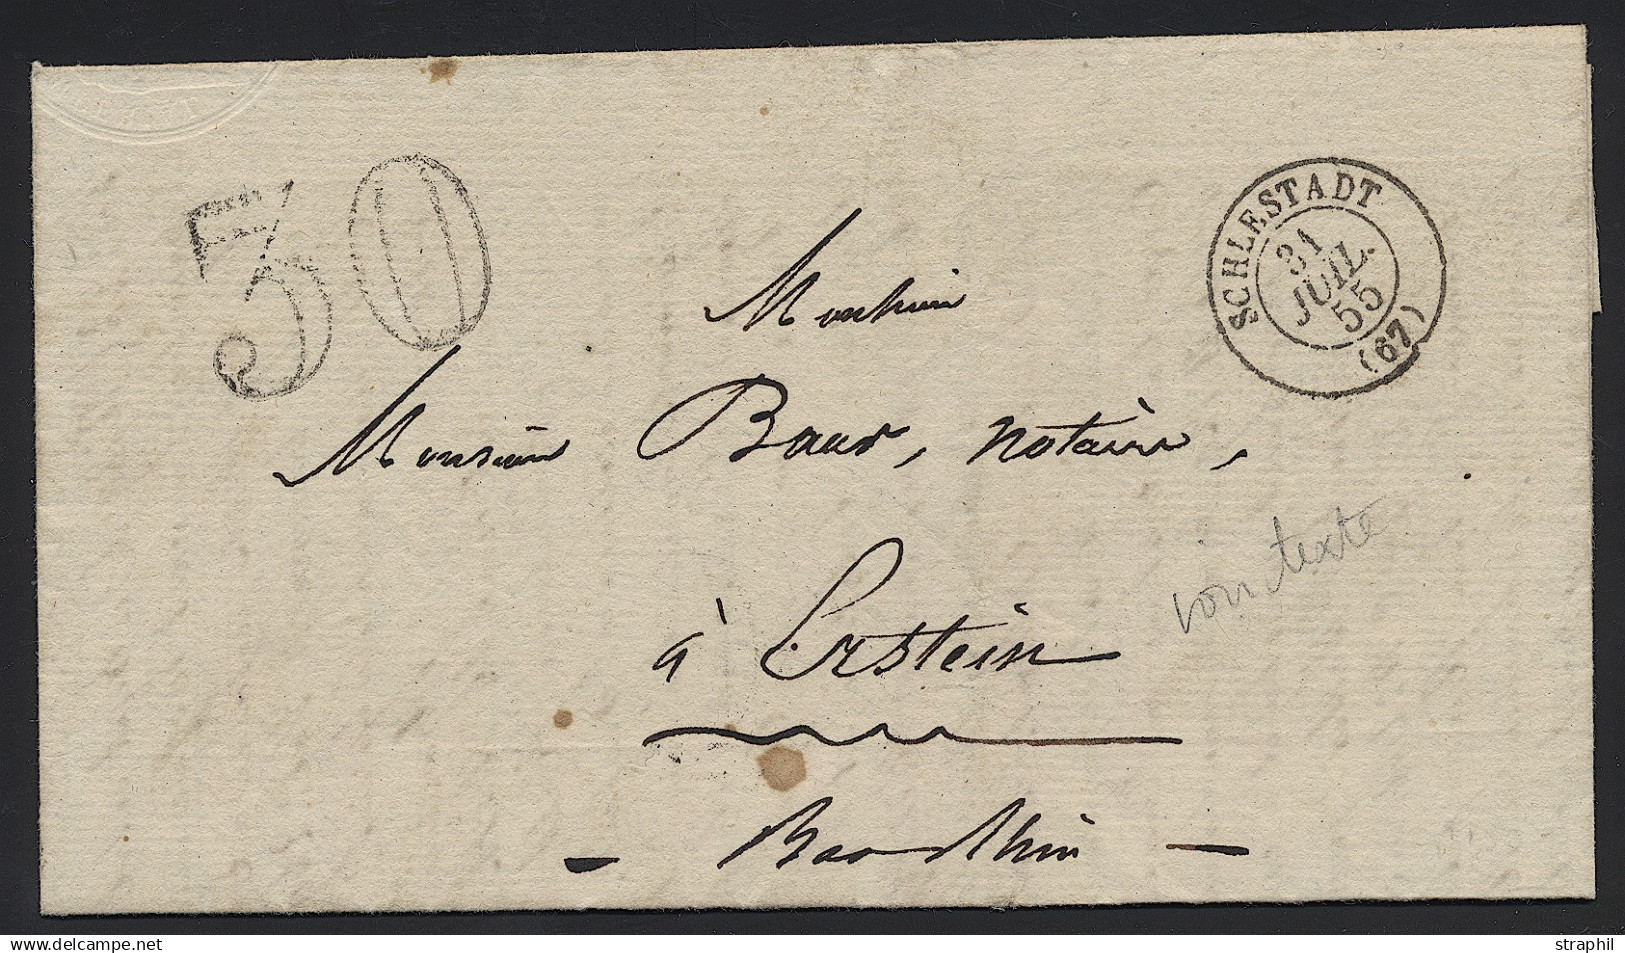 30
SCHLESTADT
31
JUIL.
55
(67)
Monsieur
Monsieur Baur, notaire,
à Erstein
voir texte
- Bas-Rhin -
delcampe.net
straphil